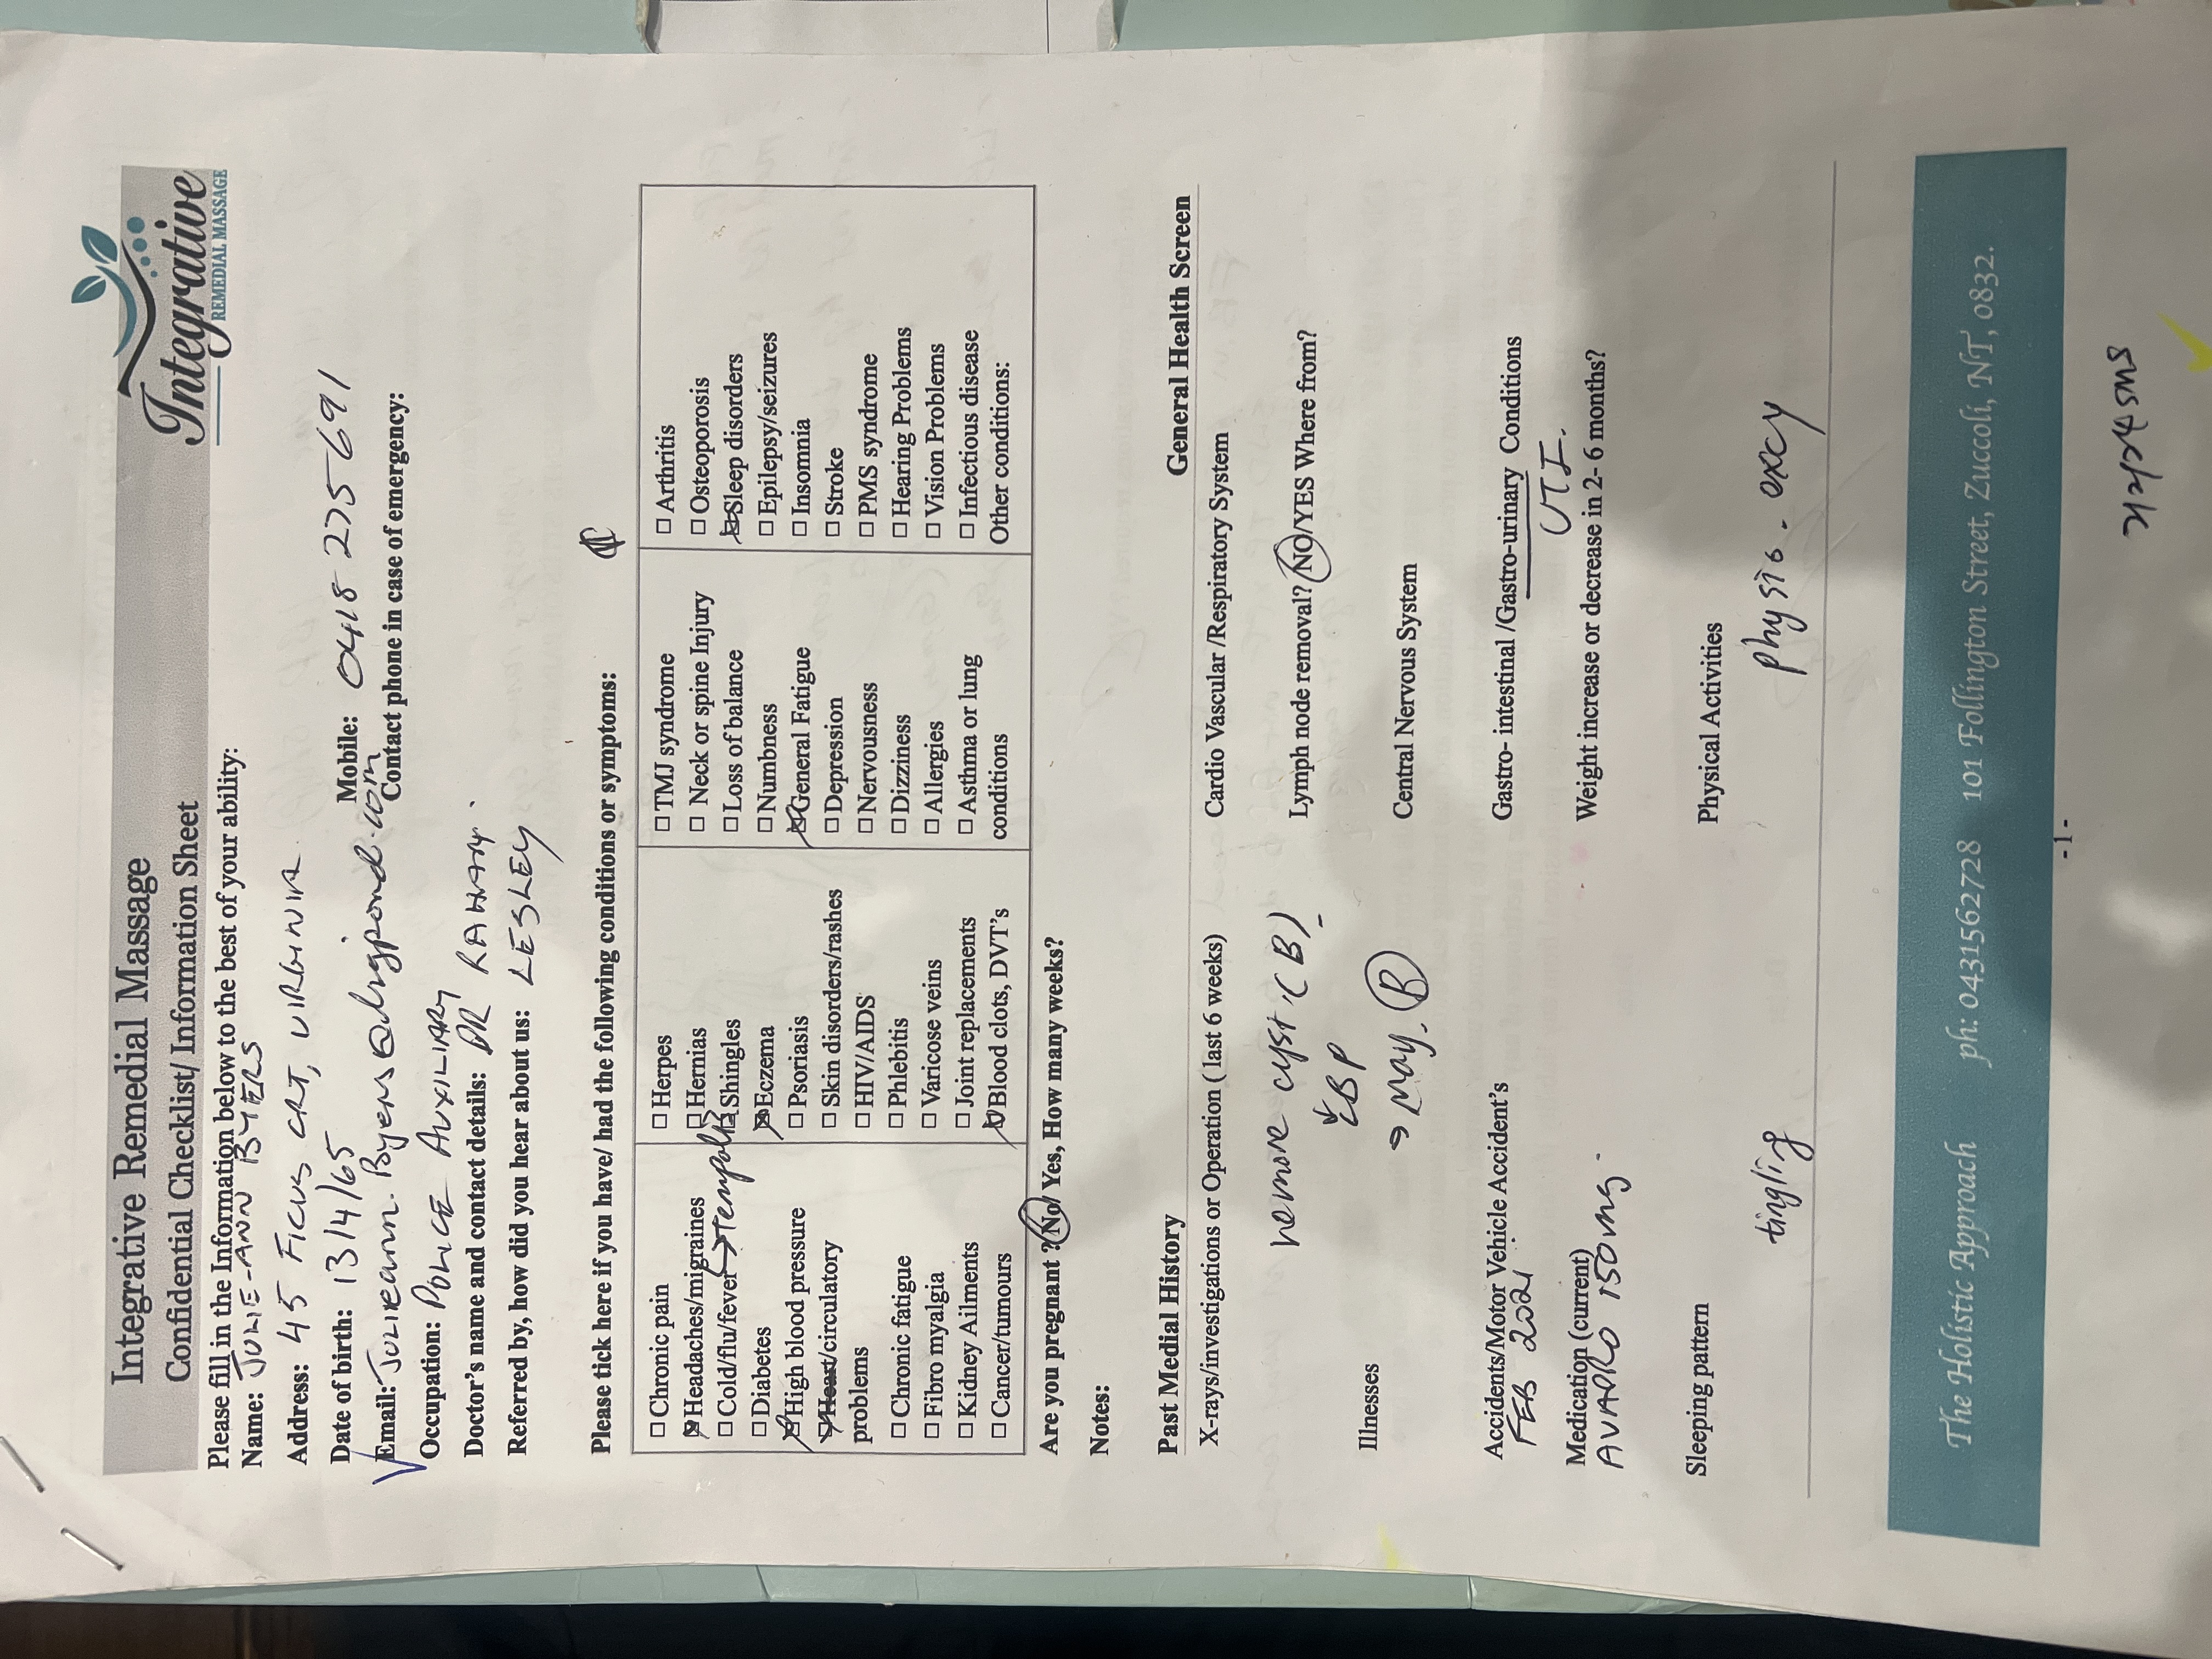 Integrative Remedial Massage
Confidential Checklist/ Information Sheet
Integrative
REMEDIAL MASSAGE
Please fill in the Information below to the best of your ability:
Name: JULIE-ANN BYERS
Address: 45 FICUS CRT, VIRGINIA.
Date of birth: 13/4/65 Mobile: 0418 275 691
Email: Julieann.Byers@bigpond.com Contact phone in case of emergency:
Occupation: POLICE AUXILIARY
Doctor's name and contact details: DR RAHMAN.
Referred by, how did you hear about us: LESLEY
Please tick here if you have/ had the following conditions or symptoms:
☐ Chronic pain
☒ Headaches/migraines
☐ Cold/flu/fever → temporalis
☐ Diabetes
☒ High blood pressure
☒ Heart/circulatory
problems
☐ Chronic fatigue
☐ Fibro myalgia
☐ Kidney Ailments
☐ Cancer/tumours
☐ Herpes
☐ Hernias
☒ Shingles
☒ Eczema
☐ Psoriasis
☐ Skin disorders/rashes
☐ HIV/AIDS
☐ Phlebitis
☐ Varicose veins
☐ Joint replacements
☒ Blood clots, DVT's
☐ TMJ syndrome
☐ Neck or spine Injury
☐ Loss of balance
☐ Numbness
☒ General Fatigue
☐ Depression
☐ Nervousness
☐ Dizziness
☐ Allergies
☐ Asthma or lung
conditions
☐ Arthritis
☐ Osteoporosis
☒ Sleep disorders
☐ Epilepsy/seizures
☐ Insomnia
☐ Stroke
☐ PMS syndrome
☐ Hearing Problems
☐ Vision Problems
☐ Infectious disease
Other conditions:
Are you pregnant ? No/ Yes, How many weeks?
Notes:
Past Medial History
X-rays/investigations or Operation ( last 6 weeks)
remove cyst (B)
BP
Illnesses → May. B
Accidents/Motor Vehicle Accident's
FEB 2021
Medication (current)
AVAPRO 150mg.
Sleeping pattern
tingling
General Health Screen
Cardio Vascular /Respiratory System
Lymph node removal? NO/YES Where from?
Central Nervous System
Gastro- intestinal /Gastro-urinary Conditions
UTI.
Weight increase or decrease in 2- 6 months?
Physical Activities
physio.
The Holistic Approach ph: 0431562728 101 Follington Street, Zuccoli, NT, 0832.
- 1 -